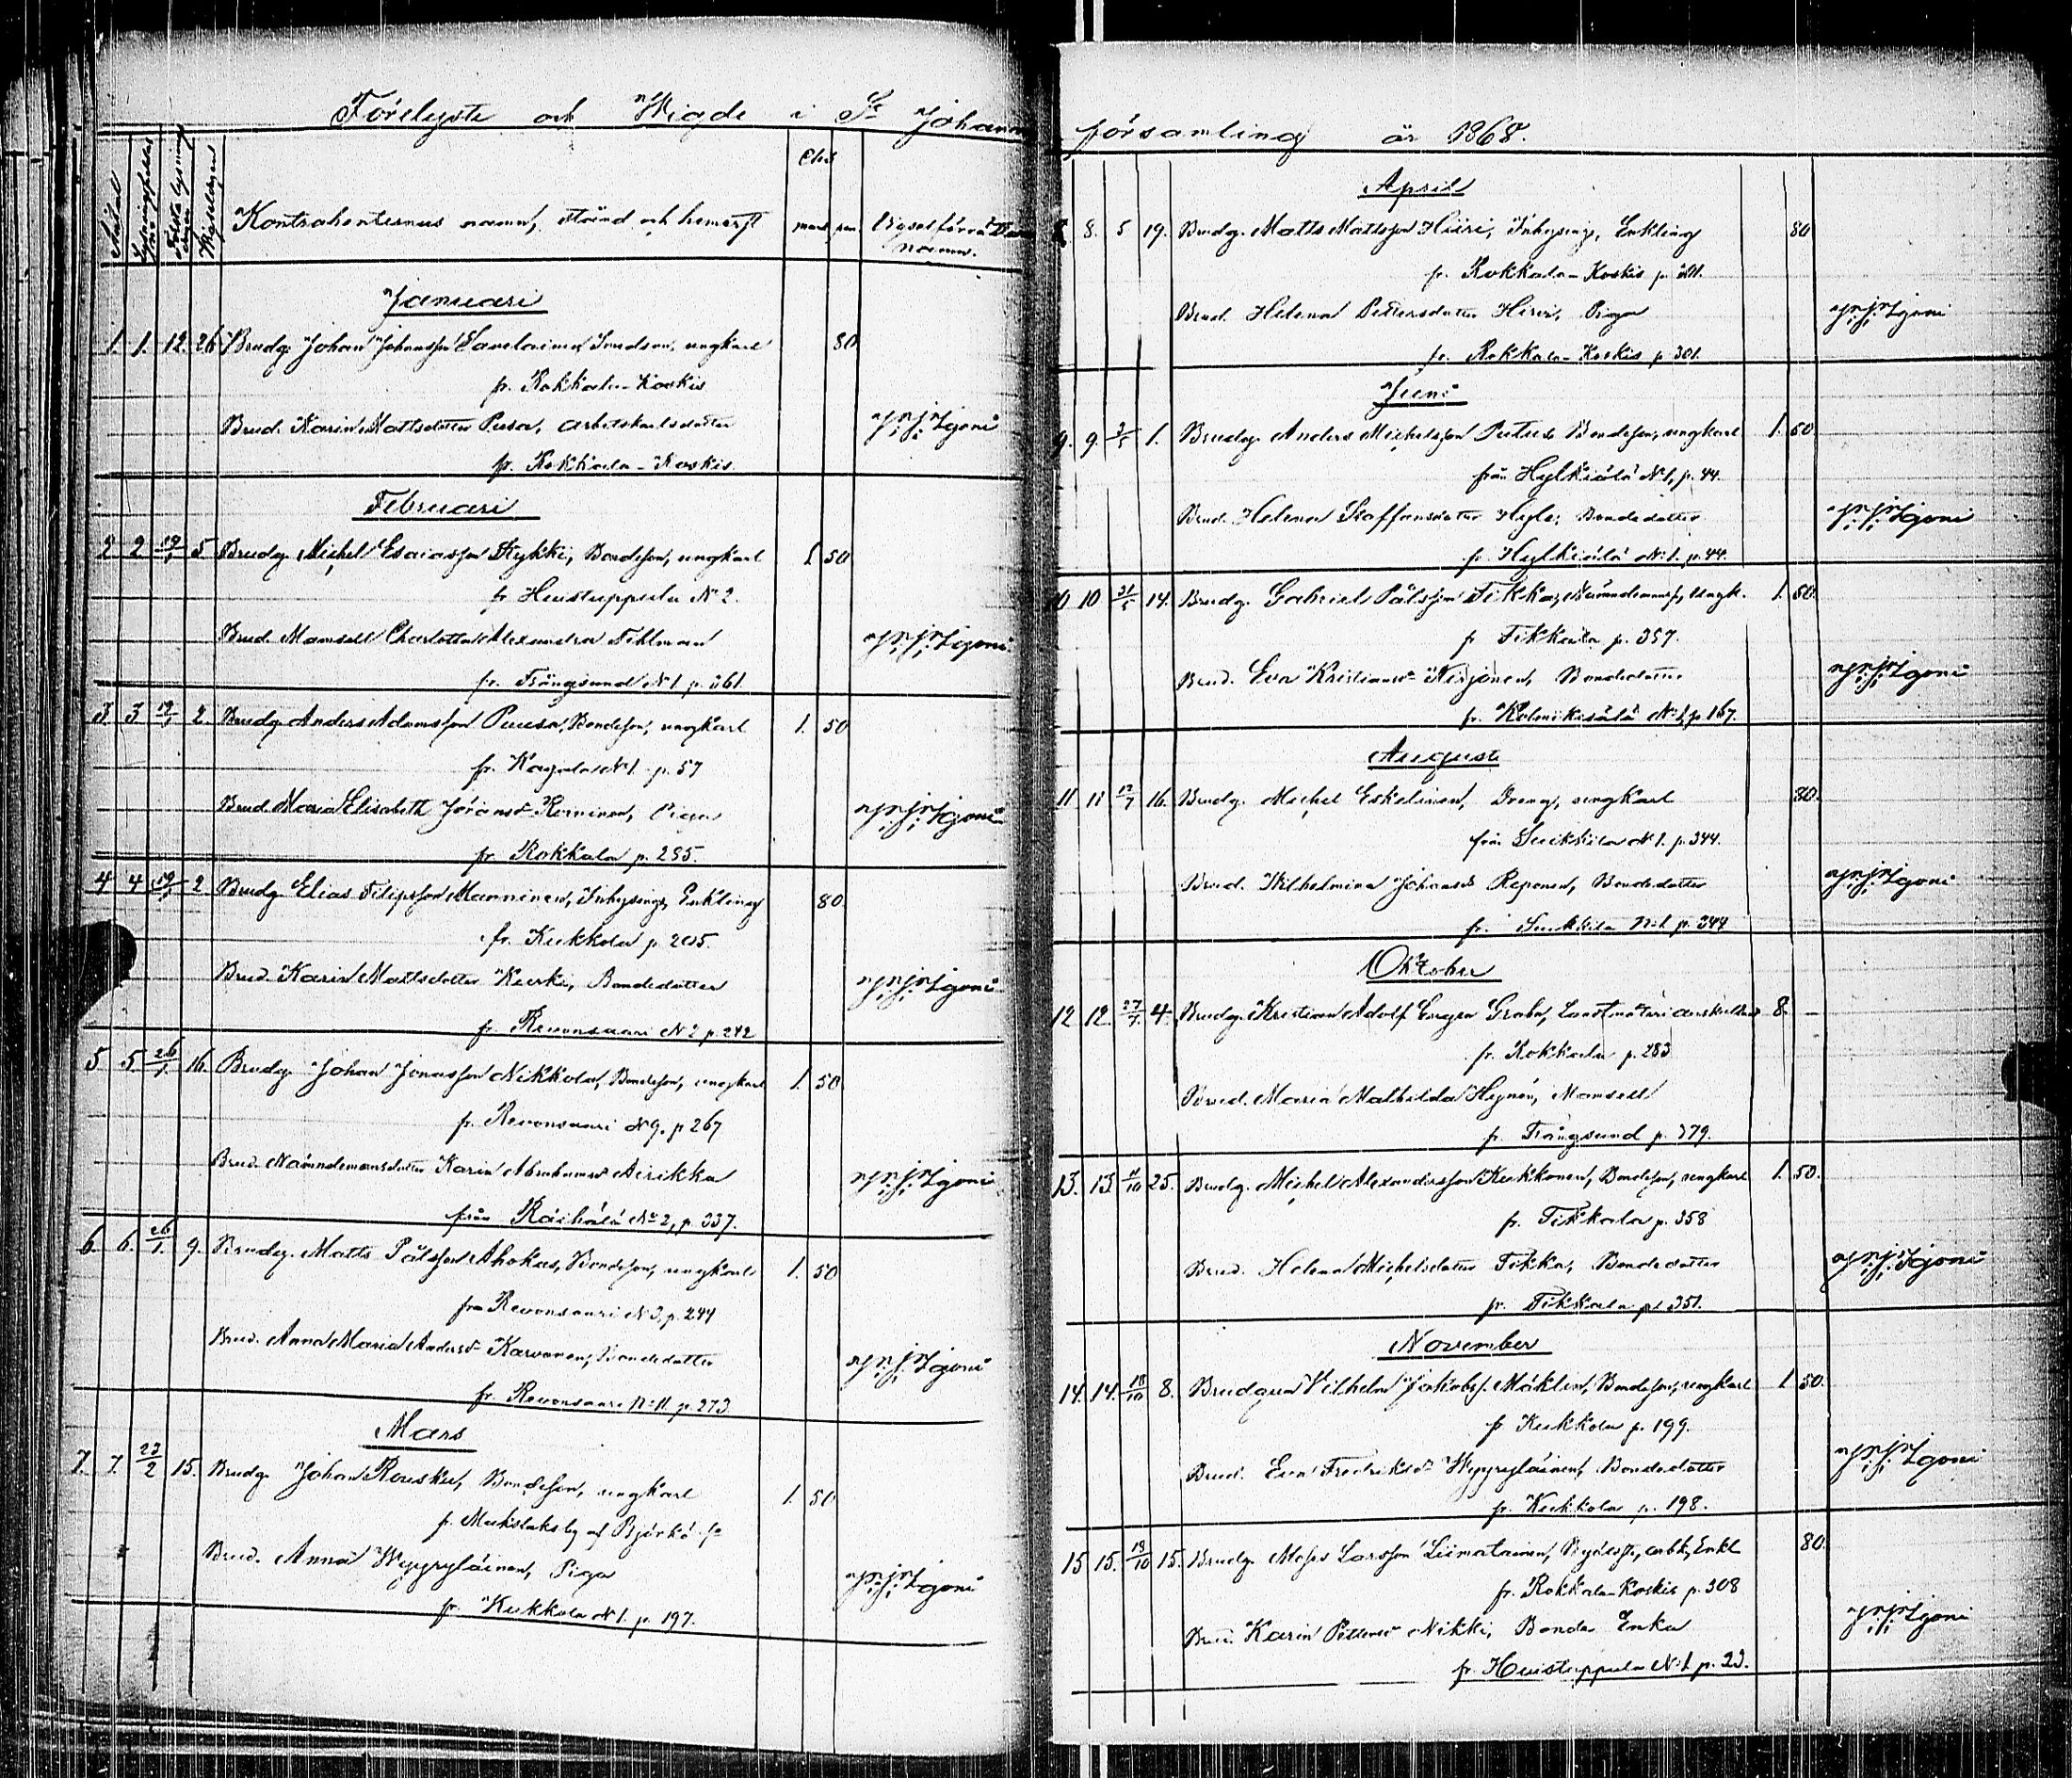 Förelyste och Wigde i St Johann
Antal
Första lysnings dagen
Wigseldagen
Kontrahenternas namn, stånd och hemvist
mark pen.
namn.
Januari
1. 1. 12. 26 Brudg. Johan Johansson Savolainen Smedson, ungkarl 80
fr. Rokkala-Koskis
Brud. Karin Mattsdotter Pusa, arbetskarlsdotter
fr. Rokkala-Koskis.
Februari
2 2 19/1 5 Brudg. Michel Esaiasson Kykki, Bondeson, ungkarl 1. 50
fr Huustuppula N 2.
Brud Mamsell Charlotta Alexandra Fihlman
fr. Trångsund N 1 p. 361.
3 3 19/1 2. Brudg Anders Adamsson Pausa, Bondeson, ungkarl 1. 50
fr. Kaijala N 1. p. 57
Brud. Maria Elisabeth Jöransd. Keminen, Piga
fr. Rokkala p. 295.
4 4 19/1 2. Brudg. Elias Filipsson Manninen, Inhysing, Enkling 80
fr. Kukkola p. 205.
Brud. Karin Mattsdotter Kurki, Bondedotter
fr. Revonsaari N 2 p. 242
5 5 26/1 16 Brudg. Johan Jonasson Nikkola, Bondeson, ungkarl 1. 50
fr. Revonsaari N 9. p 267
Brud. Nämndemansdotter Karin Abrahamsd. Airikka
från Käihälä No 2, p. 337.
6. 6. 26/1 9. Brudg. Matts Pålsson Ahokas, Bondeson, ungkarl 1. 50
fr. Revonsaari N 3, p. 244
Brud. Anna Maria Andersd. Karvonen, Bondedotter
fr. Revonsaari N:11 p. 273.
Mars
7. 7. 23/2 15. Brudg. Johan Rousku, Bondeson, ungkarl 1. 50
fr. Makslaks by af Björkö
Brud. Anna Wepsyläinen, Piga
fr. Kukkola N 1. p. 197.
församling år 1868.
April
8. 8. 5 19. Brudg. Matts Mattsson Hiiri, Inhysing, Enkling 80
fr. Rokkala-Koskis p. 301.
Brud. Helena Pettersdotter Hirvi, Piga
fr. Rokkala-Koskis p 301.
Juni
9. 9. 3/5 1. Brudg. Anders Michelsson Putus Bondeson, ungkarl 1. 50
från Hylkiälä N 1, p. 44.
Brud. Helena Staffansdotter Hyle, Bondedotter
fr. Hylkiälä N:1. p. 44.
10 10 31/5 14. Brudg. Gabriel Pålsson Tikka, Nämndemans, ungk. 1. 50.
fr Tikkala p. 357.
Brud. Eva Kristiansd. Norjonen, Bondedotter
fr. Kolmikesälä N:1, p 167.
Augusti
11 11 12/7 16. Brudg. Michel Eskelinen, Dreng, ungkarl 80.
från Suikkila N 1. p. 344.
Brud. Wilhelmina Johansd. Reponen, Bondedotter
fr. Suikkila N:1. p. 344
Oktober
12 12. 27/9 4. Brudg. Kristian Adolf Eugen Grahn, Landtmäteri auskultant 8.
fr. Rokkala p. 283
Brud. Maria Mathilda Hymén, Mamsell
fr. Trångsund p. 379.
13. 13 4/10 25. Brudg. Michel Alexandersson Kukkonen, Bondeson, ungkarl 1. 50.
fr. Tikkala p. 358
Brud. Helena Michelsdotter Tikka, Bondedotter
fr. Tikkala p. 351.
November
14. 14. 18/10 8. Brudgum Vilhelm Jakobss. Mäklin, Bondeson, ungkarl 1 50.
fr Kukkola p. 199.
Brud. Eva Fredriksd. Wepsyläinen, Bondedotter
fr. Kukkola p. 198.
15 15. 18/10 15. Brudg. Moses Larsson Liimatainen, Enkl 80.
fr. Rokkala-Koskis p. 308
Brud. Karin Pettersd. Nikki, Bonde Enka
fr. Huustuppula N:1 p. 23.